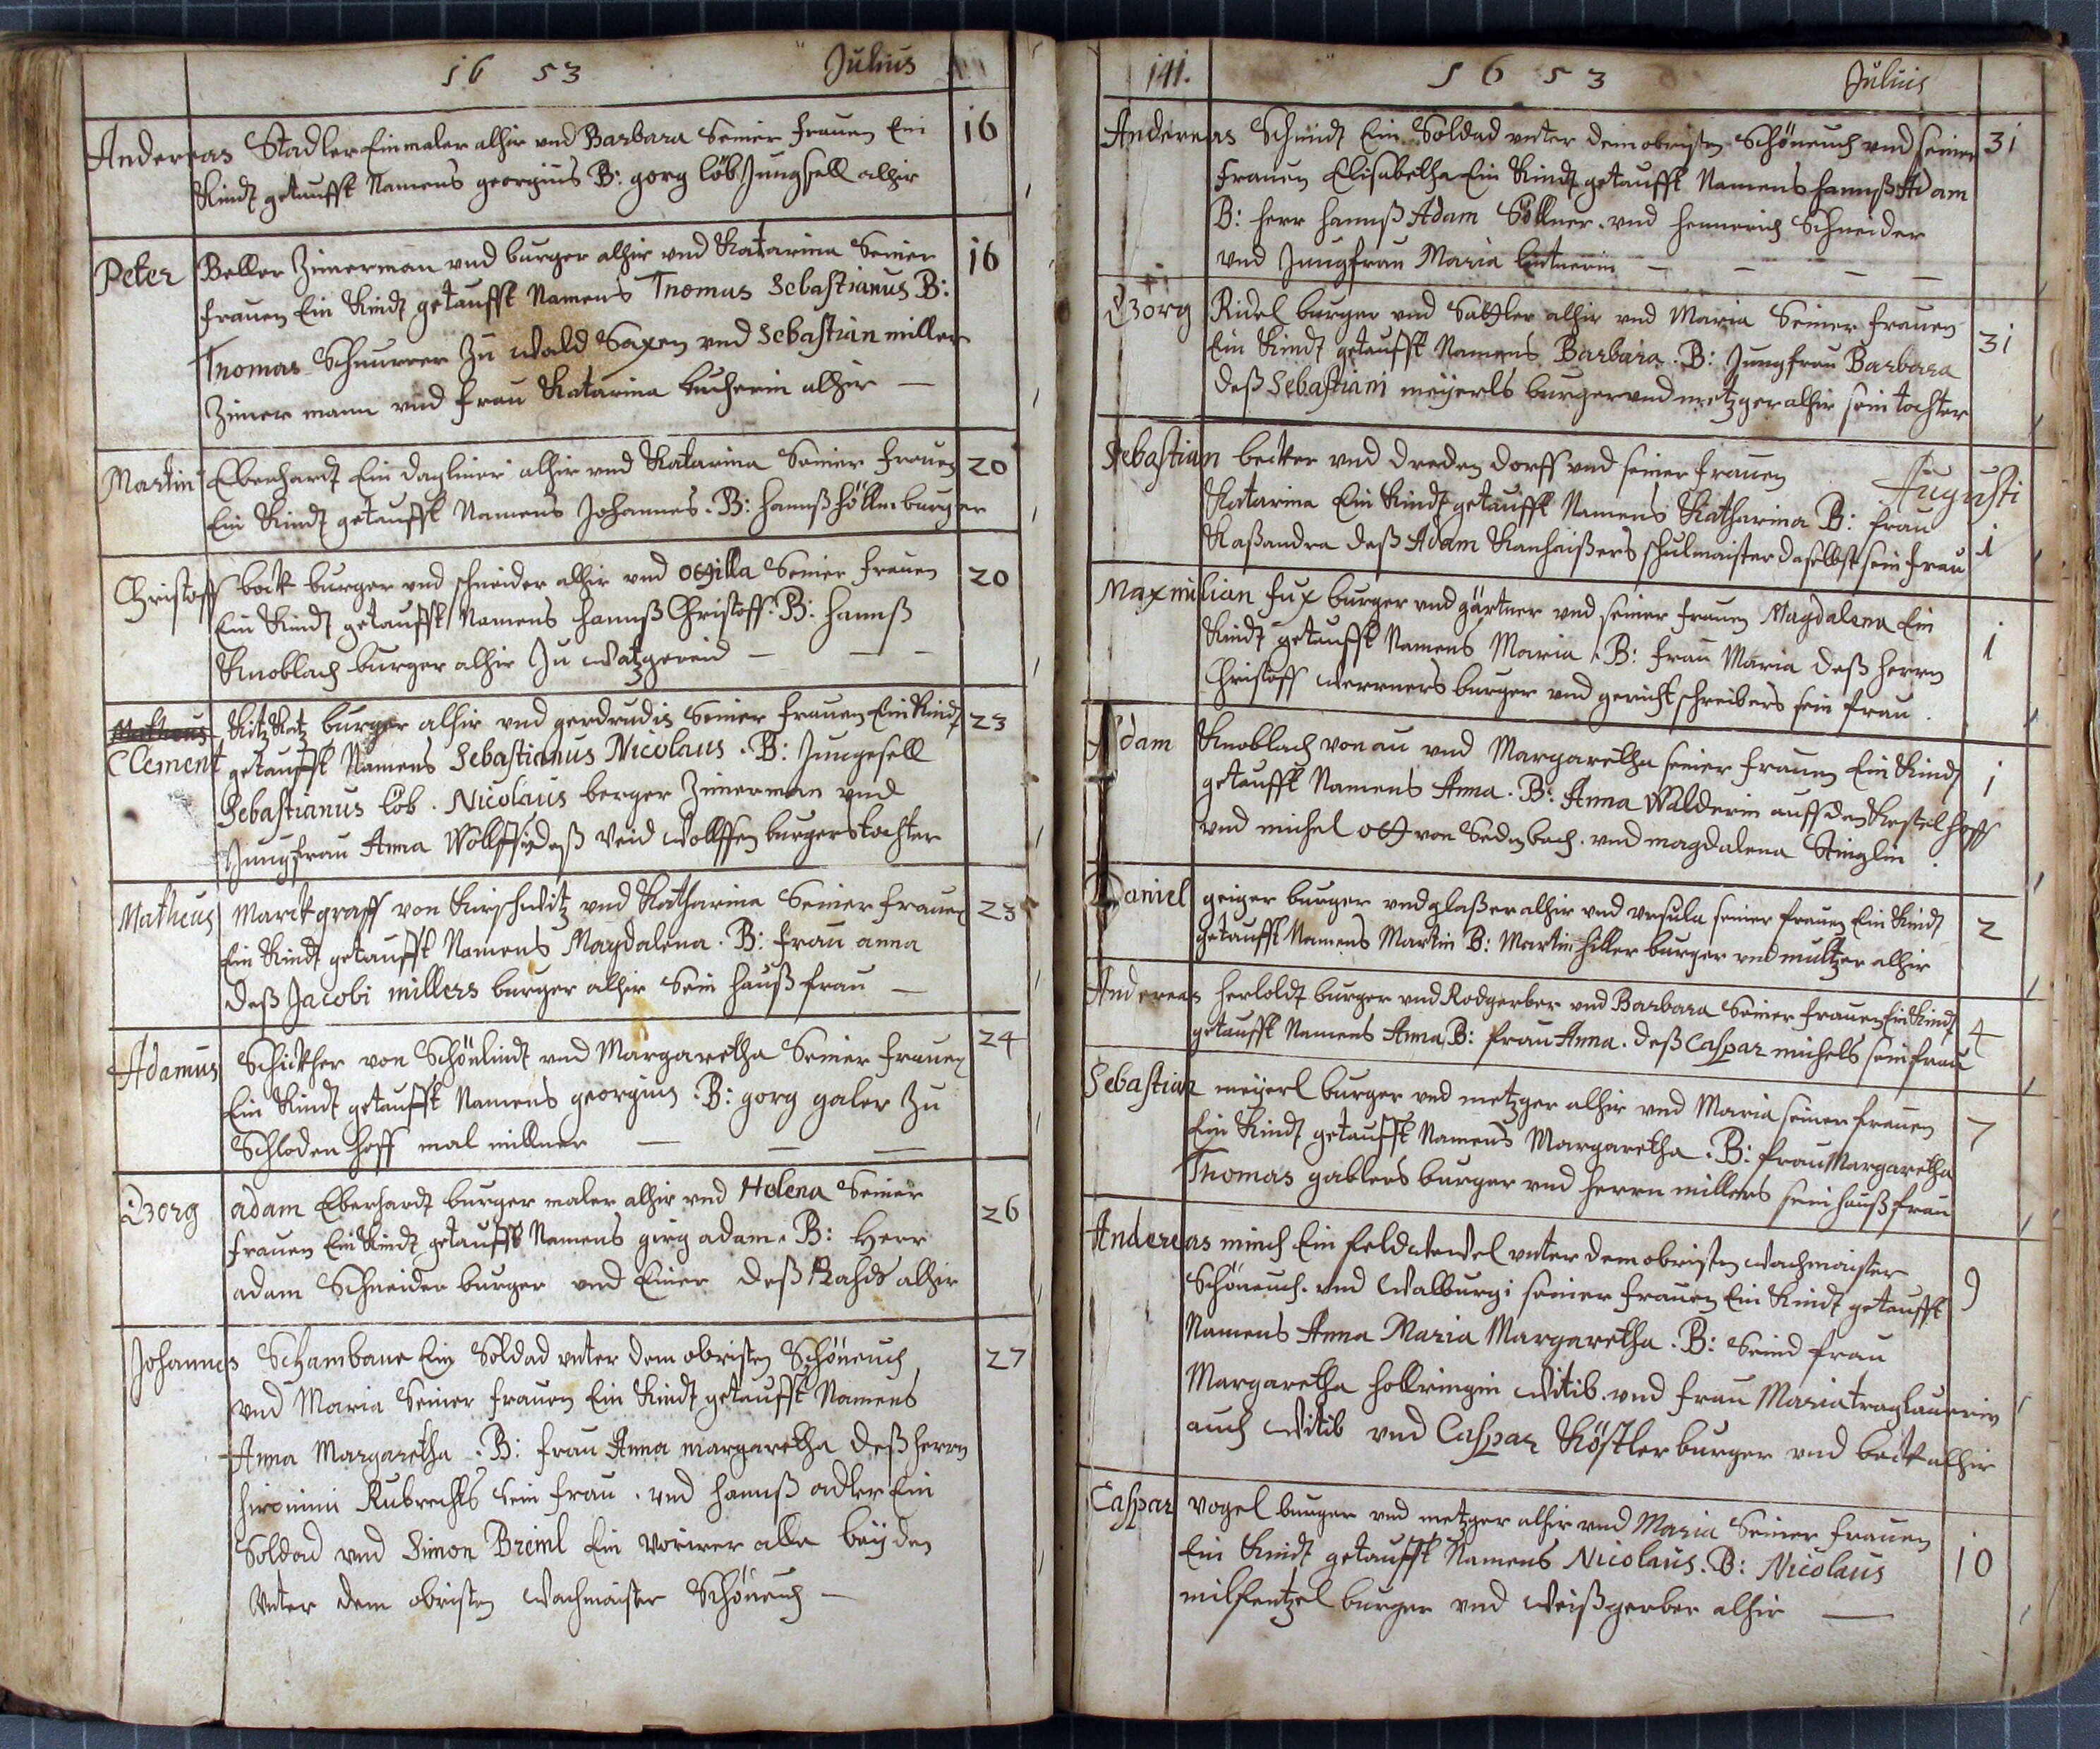 1653 Julius
Andereas Stadler Ein maler alhir vnd Barbara Seiner frauen Ein 16
Kindt getaufft Namens georgius B: gorg löb Jungsell alhir
Peter Beller Zimerman vnd burger alhir vnd Katarina Seiner 16
frauen Ein Kindt getaufft Namens Thomas Sebastianus B:
Thomas Schnurrer Zu wald Saxen vnd Sebastian miller
Zimer mann vnd frau Katarina alhir —
Martin Eberhardt Ein dagliner alhir vnd Katarina Seiner frauen 20
Ein Kindt getaufft Namens Johannes. B: hannß burger
Christoff bock burger vnd schneider alhir vnd Ottilla Seiner frauen 20
Ein Kindt getaufft Namens hannß Christoff. B: hannß
Knoblach burger alhir Zu — — —
Clement burger alhir vnd gerdrudis Seiner frauen Ein Kindt 23
getaufft Namens Sebastianus Nicolaus. B: Jungesell
Sebastianus löb. Nicolaus berger Zimerman vnd
Jungfrau Anna Wolffin deß Veid Wollffen burgers tochter
Matheus Marckgraff von Kirschwitz vnd Katharina Seiner frauen 23
Ein Kindt getaufft Namens Magdalena. B: frau anna
deß Jacobi millers burger alhir Sein hauß frau —
Adamus Schickher von Schönlindt vnd Margaretha Seiner frauen 24
Ein Kindt getaufft Namens georgius. B: gorg galer Zu
Schloden hoff mal millner — — —
Georg adam Eberhardt burger maler alhir vnd Helena Seiner 26
frauen Ein Kindt getaufft Namens girg adam. B: Herr
adam Schneider burger vnd Einer deß Rahds alhir
Johannes Schambane Ein Soldad vnter dem obristen Schöneuch 27
vnd Maria Seiner frauen Ein Kindt getaufft Namens
Anna Margaretha. B: frau Anna margaretha deß herrn
hironimi Rubrechts sein frau. vnd hannß adler Ein
Soldad vnd Simon Breml Ein alle beyden
Vnter dem obristen wachmaister Schöneuch —
141. 1653 Julius
Andereas Schmidt Ein Soldad vnter dem obristen Schöneuch vnd seiner 31
Frauen Elisabetha Ein Kindt getaufft Namens hannß Adam
B: herr hannß Adam Söllner. vnd hennerich Schneider
vnd Jungfrau Maria — — — —
Georg Ridel burger vnd Sattler alhir vnd Maria Seiner frauen 31
Ein Kindt getaufft Namens Barbara. B: Jungfrau Barbara
deß Sebastiani meyerls burger vnd metzger alhir sein tochter
Sebastian becker vnd dorff vnd seiner frauen Augusti
Katarina Ein Kindt getaufft Namens Katharina B: frau
Kaßandra deß Adam schulmaister daselbst sein frau 1
Maxmilian fux burger vnd gärtner vnd seiner frauen Magdalena Ein 1
Kindt getaufft Namens Maria. B: frau Maria deß herrn
Christoff werners burger vnd gericht schreibers sein frau.
Adam Knoblach von au vnd Margaretha seiner frauen Ein Kindt 1
getaufft Namens Anna. B: Anna Walderin auff den hoff
vnd michel ott von Sednbach. vnd magdalena Stinglin.
Daniel geiger burger vnd glaßer alhir vnd vrsula seiner frauen Ein Kindt 2
getaufft Namens Martin B: Martin hiller burger vnd multzer alhir
Andereas herloldt burger vnd Rodgerber vnd Barbara Seiner frauen Ein Kindt 4
getaufft Namens Anna B: frau Anna. deß Caspar michels sein frau
Sebastian meyerl burger vnd metzger alhir vnd Maria seiner frauen 7
Ein Kindt getaufft Namens Margaretha. B: frau Margaretha
Thomas gablers burger vnd herrn millers sein hauß frau
Andereas minch Ein feldwewel vnter dem obristen wachmaister 9
Schöneuch. vnd Walburgi seiner frauen Ein Kindt getaufft
Namens Anna Maria Margaretha. B: Seind frau
Margaretha hollringin witib. vnd frau Maria traglaurin
auch witib vnd Caspar Köstler burger vnd beck alhir
Caspar vogel burger vnd metzger alhir vnd Maria Seiner frauen 10
Ein Kindt getaufft Namens Nicolaus. B: Nicolaus
milfentzel burger vnd weißgerber alhir —